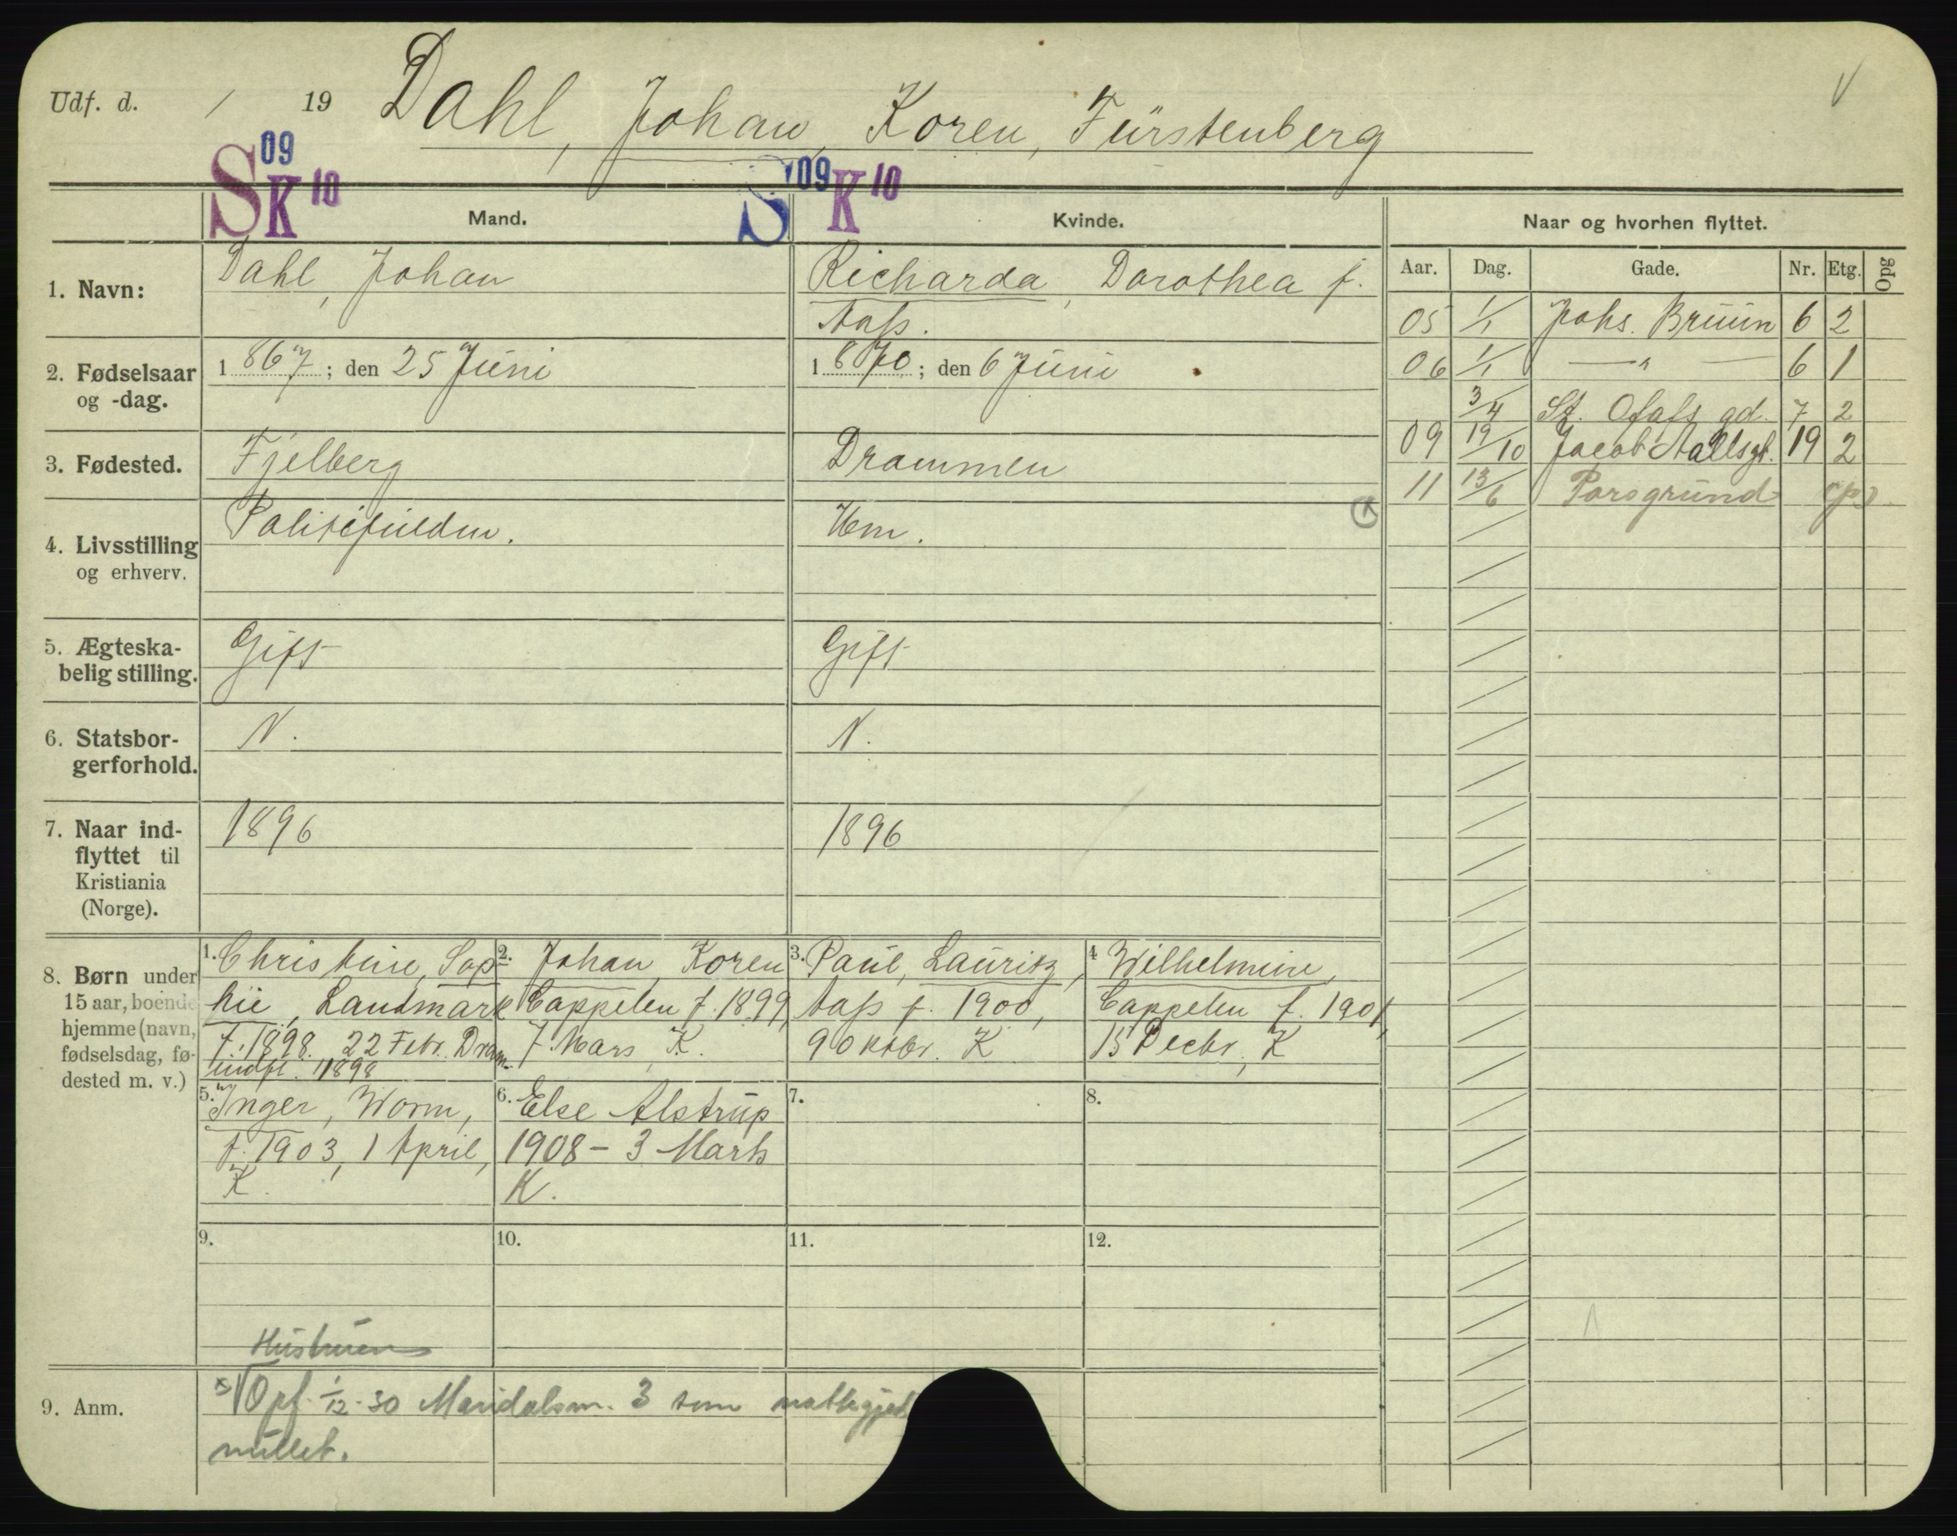 Udf. d. / 19 Dahl, Johan, Koren, Fürstenberg
V
S 09 K 10 S 09 K 10
Mand. Kvinde. Naar og hvorhen flyttet.
Aar. Dag. Gade. Nr. Etg. Opg
1. Navn: Dahl, Johan
Richarda, Dorothea f.
Aass.
2. Fødselsaar
og -dag.
1867; den 25 Juni
1870; den 6 Juni
3. Fødested. Fjelberg
Drammen
4. Livsstilling
og erhverv.
Politifuldm.
Hm.
5. Ægteska-
belig stilling.
Gift
Gift
6. Statsbor-
gerforhold.
N.
N.
7. Naar ind-
flyttet til
Kristiania
(Norge).
1896
1896
05 1/1 Johs. Bruun 6 2
06 1/1 — " — 6 1
3/4 St. Olafs gd. 7 2
09 19/10 Jacob Aallsgt. 19 2
11 13/6 Porsgrund (p)
8. Børn under
15 aar, boende
hjemme (navn,
fødselsdag, fø-
dested m. v.)
1. Christine, Sop-
hie, Landmark
f. 1898. 22 Febr. Dram.
indfl. 1898
2. Johan, Koren
Cappelen f. 1899,
7 Mars, K.
3. Paul, Lauritz,
Aass f. 1900,
9 Oktbr. K
4 Wilhelmine,
Cappelen f. 1901,
15 Decbr, K
5. Inger, Worm,
f. 1903, 1 April,
K.
6. Else Alstrup
1908 - 3 Marts
K.
7.
8.
9.
10.
11.
12.
Hustruen
9. Anm. x) V Opf. 1/12-30 Maridalsvn. 3 som